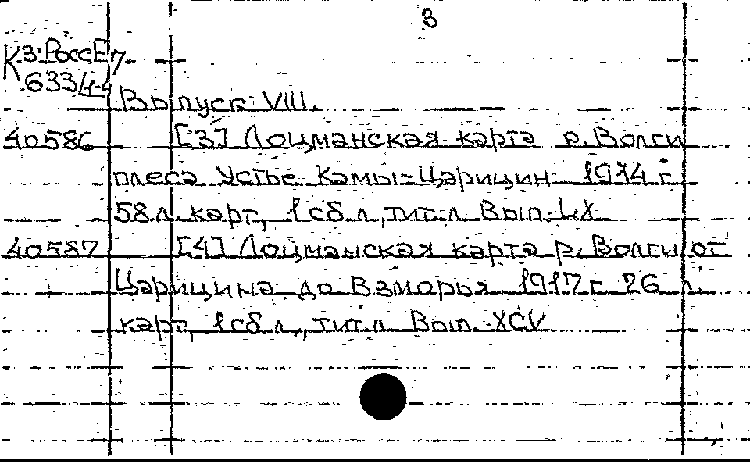 3
К 3-РоссЕ 7
633/4-4
Выпуск VIII.
40586 [3] Лоцманская карта р. Волги
плеса Устье Камы-Царицин 1914 г
58 л. карт, 1 сб. л, тит. л Вып. LX
40587 [4] Лоцманская карта р. Волги от
Царицина до Взморья 1917 г 26 л.
карт, 1 сб л, тит. л Вып. XCV